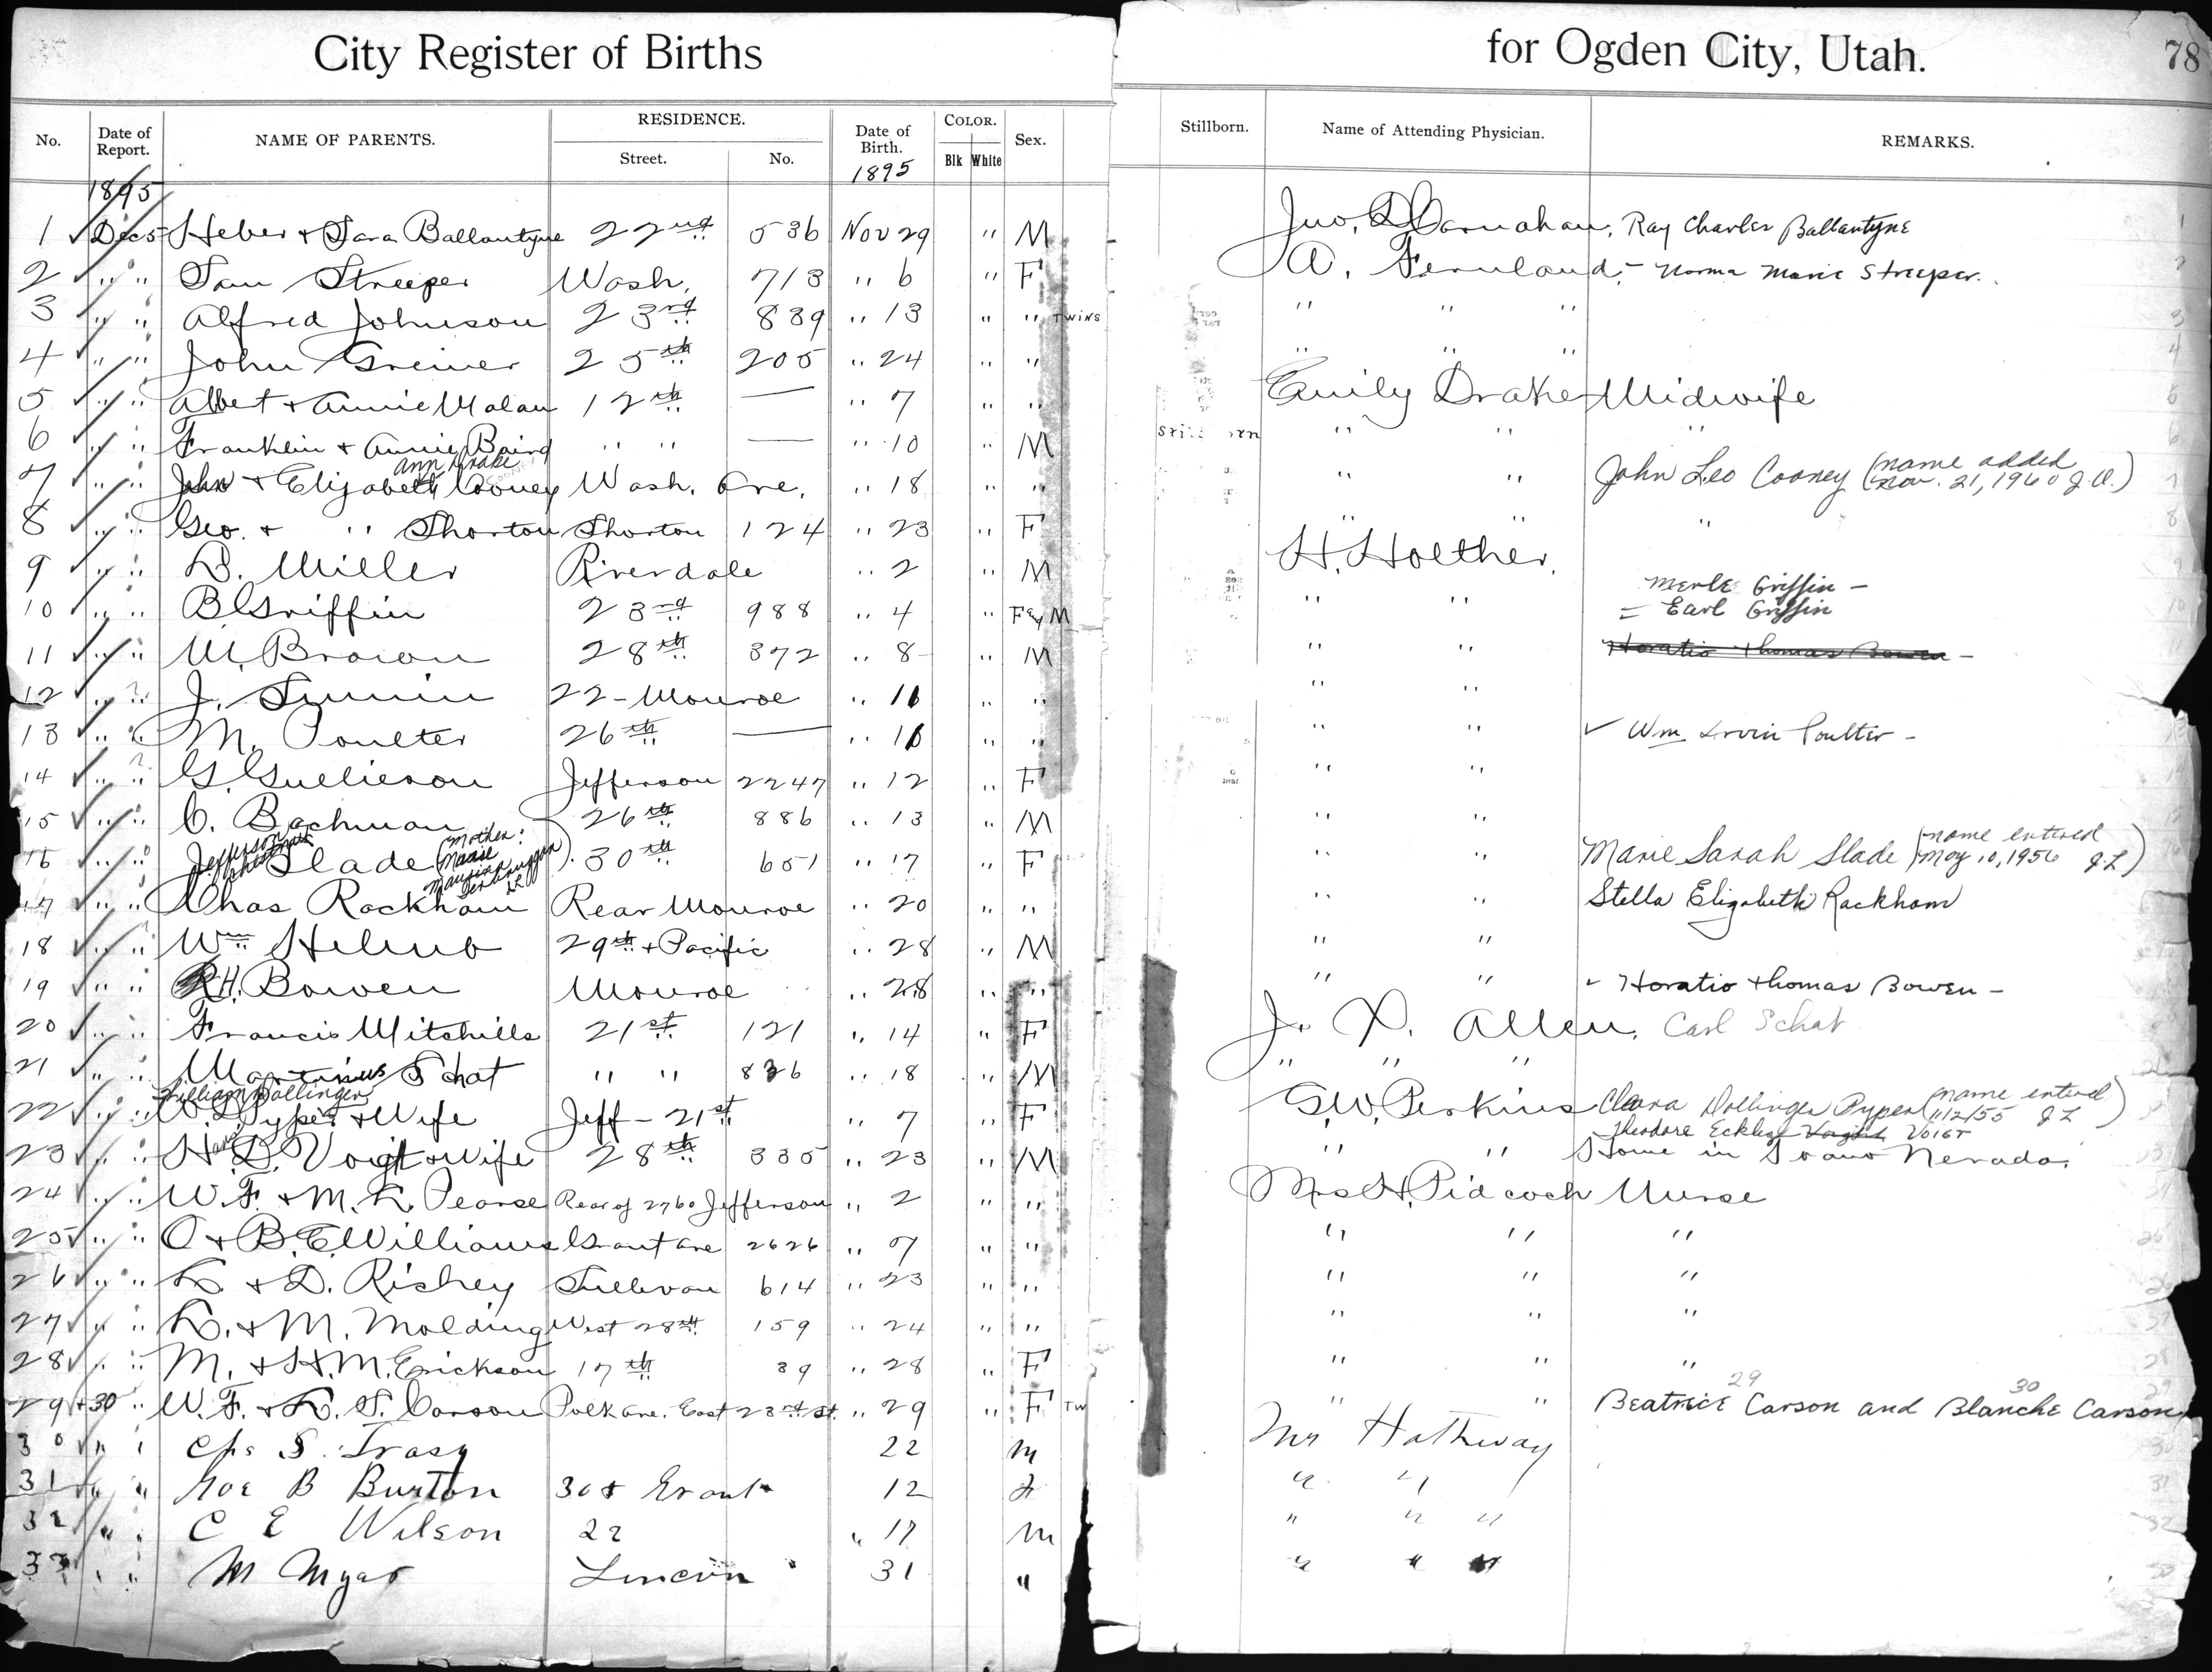 City Register of Births for Ogden City, Utah. 78
No. Date of Report. NAME OF PARENTS. RESIDENCE. Street. No. Date of Birth. 1895 COLOR. Blk White Sex. Stillborn. Name of Attending Physician. REMARKS.
1895
1 Dec 5 Heber + Sara Ballantyne 22nd 536 Nov 29 " M Jno. Carnahan, Ray Charles Ballantyne
2 " " Sam Streeper Wash. 713 " 6 " F A. Fernlund, - Norma Marie Streeper.
3 " " Alfred Johnson 23rd 839 " 13 " " TWINS " " "
4 " " John Greiner 25th 205 " 24 " " " " "
5 " " Albert + Annie Malan 12th — " 7 " " Emily Drake Midwife
6 " " Franklin + Annie Baird " " — " 10 " M Stillborn " " "
7 " " John + Elizabeth Ann Drake Cooney Wash. Ave. " 18 " " " " John Leo Cooney (name added Nov. 21, 1960 J.O.)
8 " " Geo. + " Shorton Shorton 124 " 23 " F " " "
9 " " D. Miller Riverdale " 2 " M H. Hoether.
10 " " B Griffin 23rd 988 " 4 " F & M " " Merle Griffin -
= Earl Griffin
11 " " W. Brown 28th 372 " 8 " M " " Horatio Thomas Bowen -
12 " " J. 22 - Monroe " 11 " " " "
13 " " M. Poulter 26th — " 11 " " " " ✓ Wm Irvin Poulter -
14 " " G. Jefferson 2247 " 12 " F " "
15 " " C. Bachman 26th 886 " 13 " M " "
16 " " Jefferson Slade (Mother: Marie) 30th 651 " 17 " F " " Marie Sarah Slade (name entered May 10, 1956 J L)
17 " " Chas Rackham Rear Monroe " 20 " " " " Stella Elizabeth Rackham
18 " " Wm 29th + Pacific " 28 " M " "
19 " " R H. Bowen Monroe " 28 " " " " ✓ Horatio Thomas Bowen -
20 " " Francis Mitchills 21st 121 " 14 " F J. X. Allen. Carl Schat
21 " " Martinus Schat " " 836 " 18 " M " " "
22 " " William Dollinger Pyper + Wife Jeff - 21st " 7 " F G.W. Perkins Clara Dollinger Pyper (name entered 11/2/55 J L)
23 " " Hans D. Voigt + Wife 28th 335 " 23 " M " " Theodore Eckles Voight VOIGT
Home in Nevada.
24 " " W. F. + M. K. Pearse Rear of 2760 Jefferson " 2 " " Mrs H. Pidcock Nurse
25 " " O + B. E. Williams Grant Ave 2626 " 7 " " " " "
26 " " L + D. Richey Sullivan 614 " 23 " " " " "
27 " " L. + M. Molding West 28th 159 " 24 " " " " "
28 " " M. + H. M. Erickson 17th 39 " 28 " F " " "
29 + 30 " W. F. + L. S. Carson Polk ave. East 23rd St. " 29 " F TW " " 29 Beatrice Carson and 30 Blanche Carson
30 " " Chs S. Tracy 22 M Mr Hathway
31 " " Goe B Burton 30 & Grant 12 F " "
32 " " C E Wilson 22 " 17 M " " "
33 " " M Myas Lincoln 31 " " " "